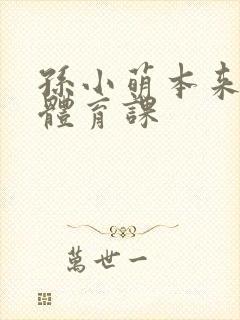 孫小萌本来
體育課
萬世一